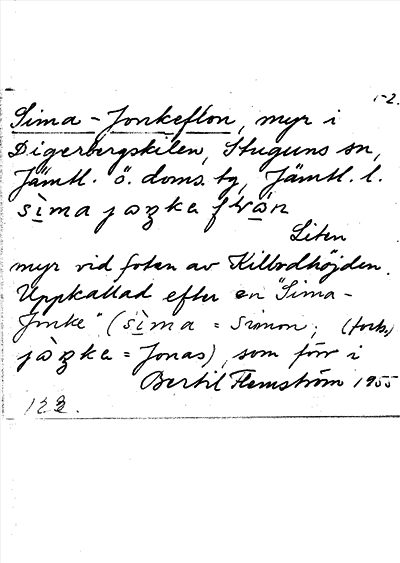 1-2.
Sima-Jonkeflon, myr i
Digerbergskilen, Stuguns sn,
Jämtl. ö. doms. tg, Jämtl. l.
sìma jaŋka från
Liten
myr vid foten av Killodhöjden.
Uppkallad efter en "Sima-
Jonke" (sìma = Simon; (forts.)
jàŋka = Jonas), som förr i
Bertil Flemström 1955
122.